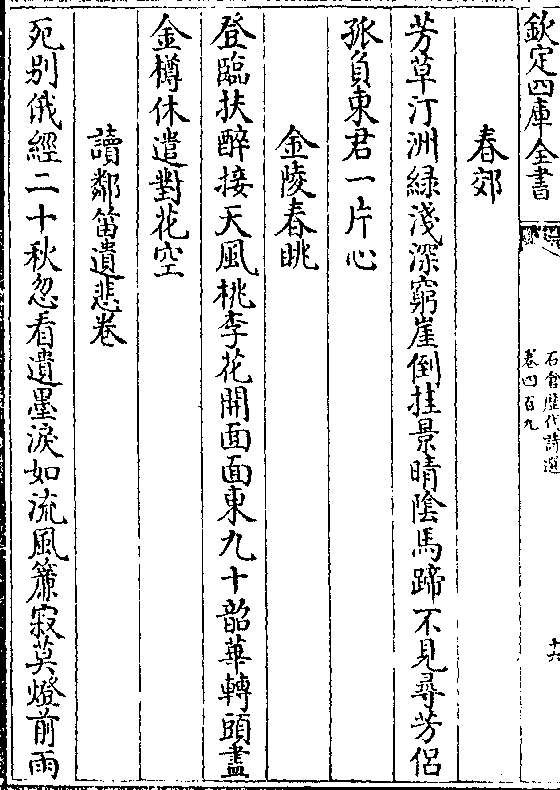 欽定四庫全書
石倉歷代詩選
卷四百九
十六
春郊
芳草汀洲綠淺深窮崖倒挂景晴陰馬蹄不見尋芳侶
孤負東君一片心
金陵春眺
登臨扶醉接天風桃李花開面面東九十韶華轉頭盡
金樽休遣對花空
讀鄰笛遺悲卷
死别俄經二十秋忽看遺墨淚如流風簾寂莫燈前雨